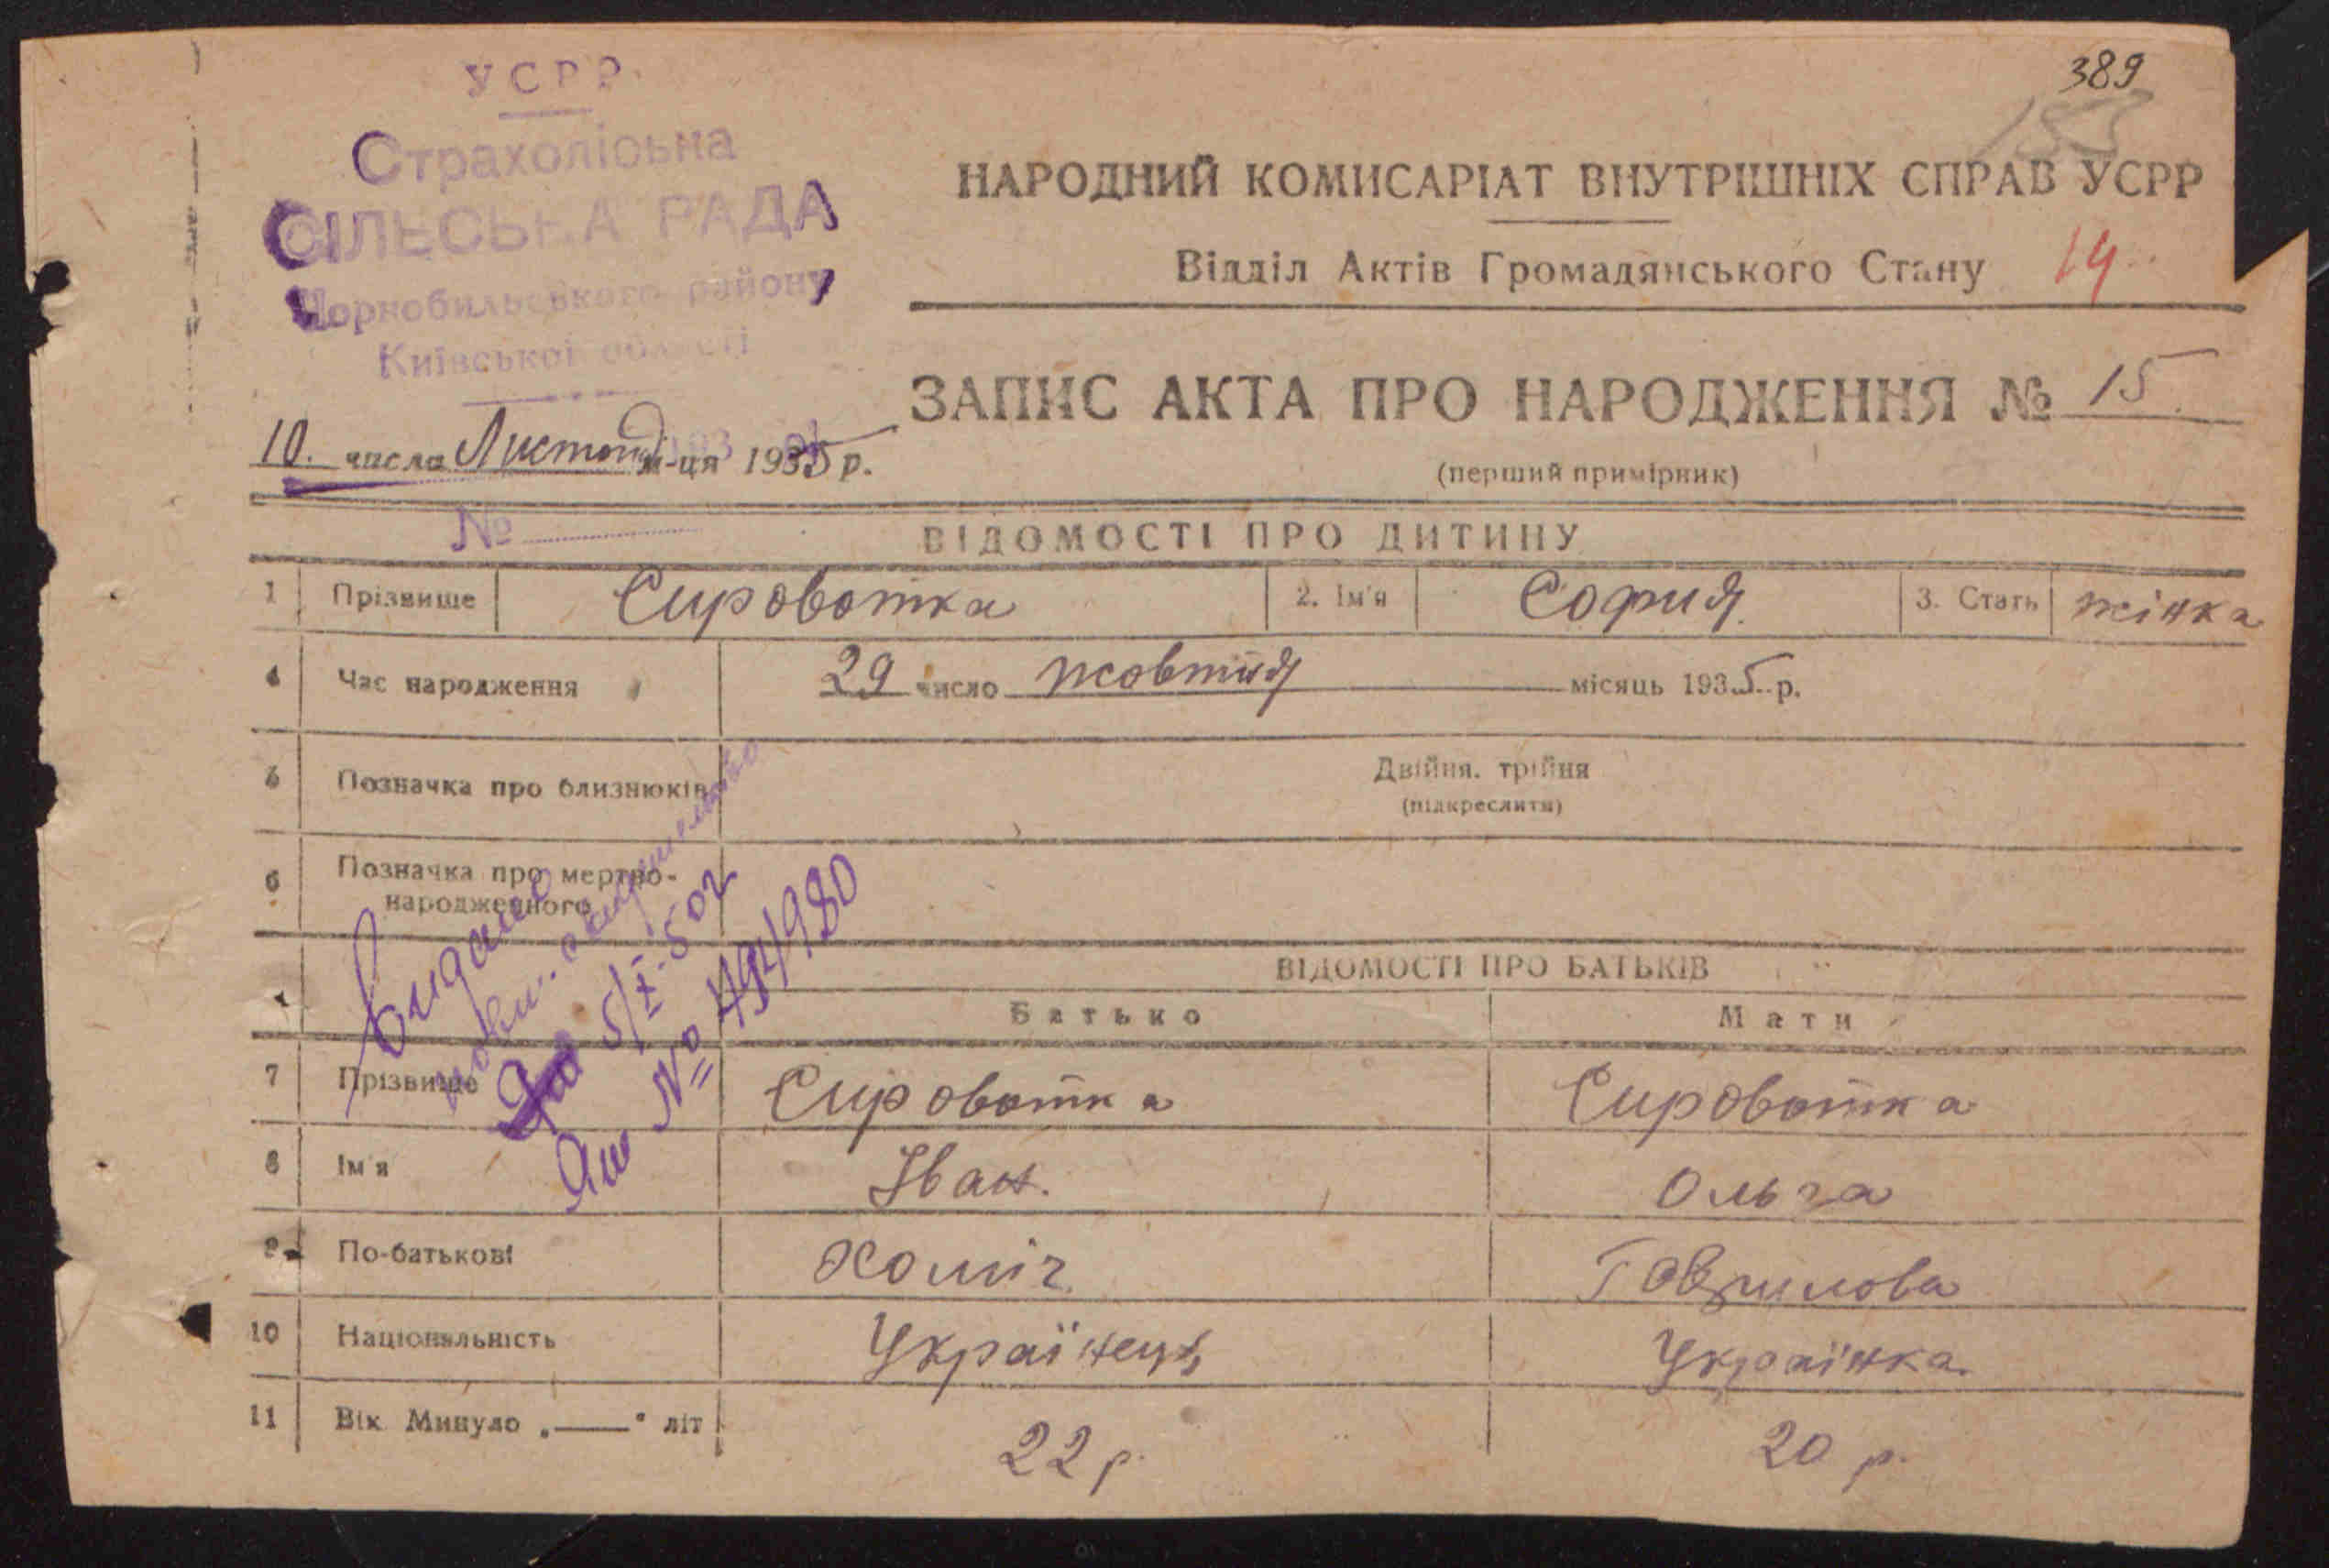 389
УСРР
Страхоліська
СІЛЬСЬКА РАДА
Чорнобильського району
Київської області
НАРОДНИЙ КОМИСАРІАТ ВНУТРІШНІХ СПРАВ УСРР
Відділ Актів Громадянського Стану 14
ЗАПИС АКТА ПРО НАРОДЖЕННЯ № 15
10. числа Листопад м-ця 1935 р.
(перший примірник)
№
ВІДОМОСТІ ПРО ДИТИНУ
1 Прізвище Сироватка 2. Ім'я София 3. Стать жінка
4 Час народження 29 число жовтня місяць 1935 р.
5 Позначка про близнюків Двійня, трійня
(підкреслити)
6 Позначка про мертво-
народженного
Выдано
повт. свидетельство
5/X-50г
№ 494980
ВІДОМОСТІ ПРО БАТЬКІВ
Батько Мати
7 Прізвище Сироватка Сироватка
8 Ім'я Іван. Ольга
9 По-батькові Хоміч Гаврилова
10 Національність Українець Українка
11 Вік. Минуло „——" літ 22 р. 20 р.